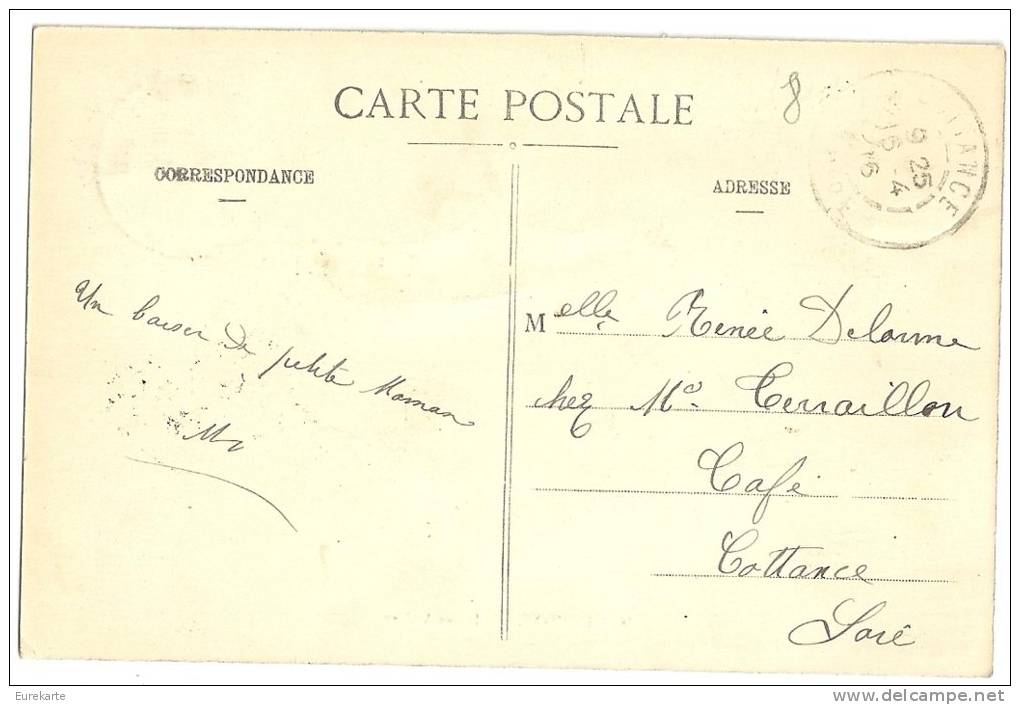 CARTE POSTALE
8
CORRESPONDANCE
ADRESSE
9 25
15 -4
Un baiser de petite Maman
Melle Renée Delorme
chez Me. Terraillon
Café
Cottance
Loire
Eurekarte
delcampe.net